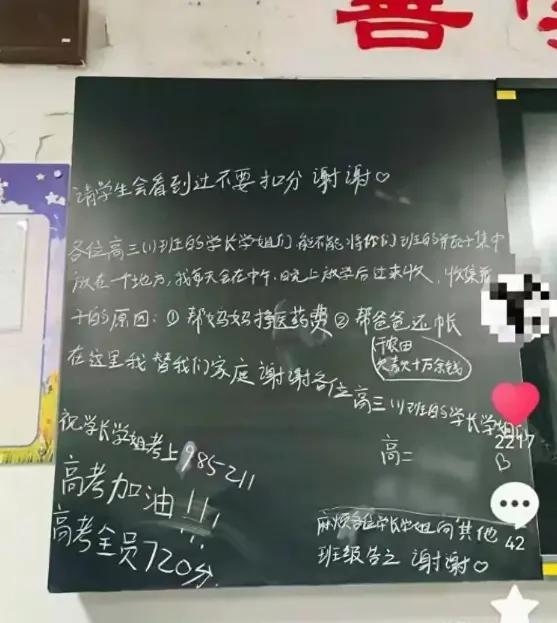 善
请学生会看到过不要扣分 谢谢♡
各位高三(1)班的学长学姐们,能不能将你们班的瓶子集中
放在一个地方,我每天会在中午、晚上放学后过来收,收集瓶
子的原因:① 帮妈妈挣医药费 ② 帮爸爸还帐
干农田
欠款十万余钱
在这里我替我们家庭谢谢各位高三(1)班的学长学姐们
高二
祝学长学姐考上985211
高考加油!!!
高考全员720分
麻烦各位学长学姐向其他
班级告之 谢谢♡
2217
42